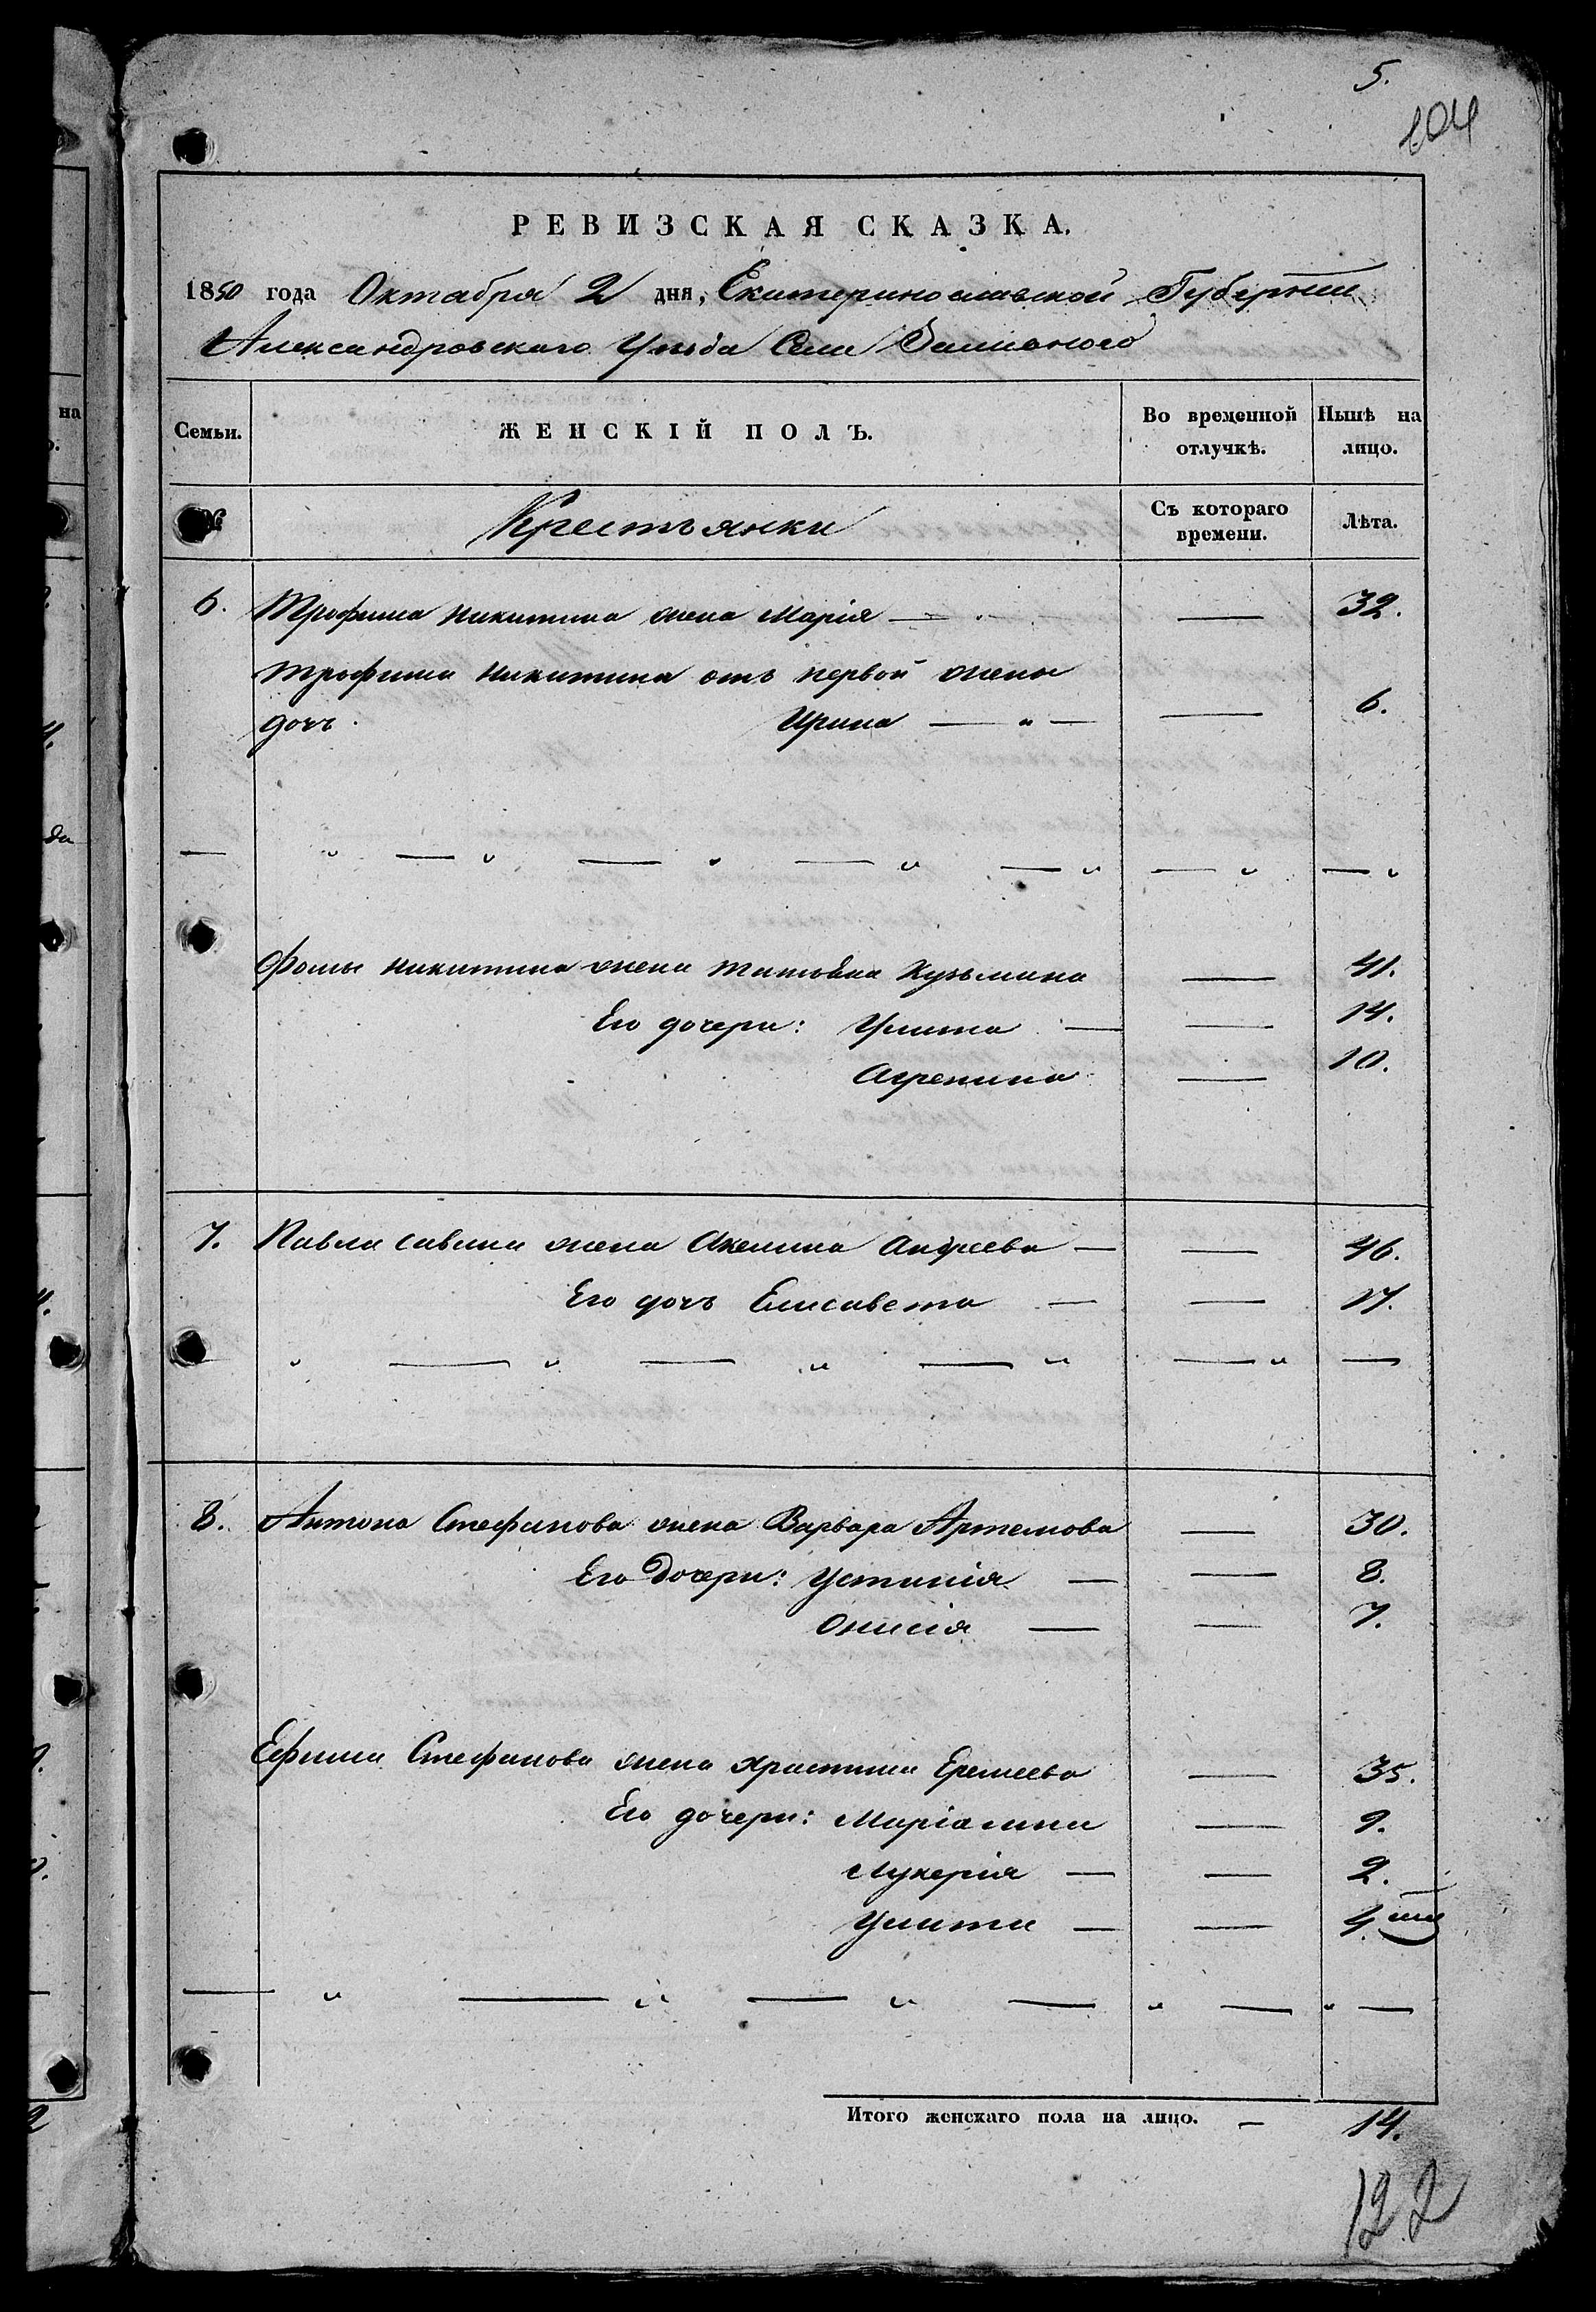 5.
104
РЕВИЗСКАЯ СКАЗКА.
1850 года Октабря 2 дня, Екатеринославской Губерніи
Александровскаго Уѣзда Села
Семьи. ЖЕНСКІЙ ПОЛЪ. Во временной отлучкѣ. Нынѣ на лицо.
№ Крестьянки Съ котораго времени. Лѣта.
6. Трофима Никитина жена Марія — — 32.
Трофима Никитина отъ первой жены
дочь Ирина — " — — 6.
Фомы Никитина жена Татьяна Кузьмина — 41.
Его дочери: Улита — — 14.
Агрепина — 10.
7. Павла Савина жена Акелина Андреева — — 46.
Его дочь Елисавета — — 17.
8. Антона Стефанова жена Варвара Артемова — 30.
Его дочери: Устинія — — 8.
Онисія — — 7.
Ефима Стефанова жена Христина Еремеева — 35.
Его дочери: Маріамна — 9.
Лукерія — — 2.
Улита — — 4
Итого женскаго пола на лицо. — 14.
122